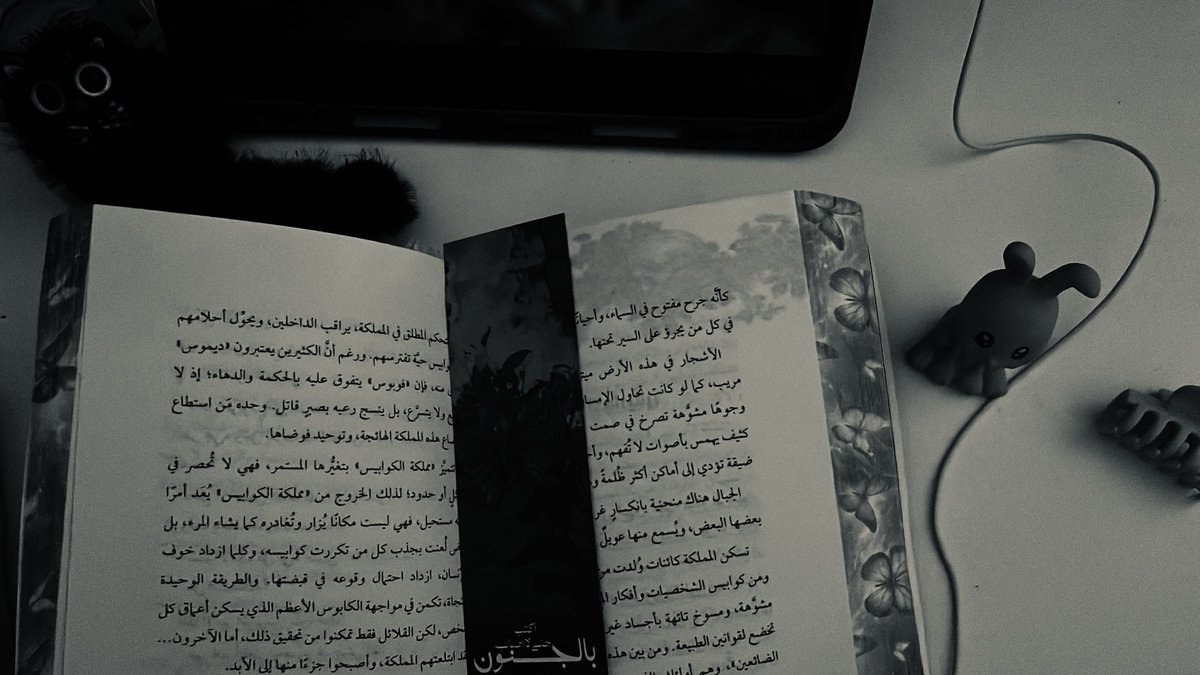 كأنَّه جرح مفتوح في السماء، وأحيانًا
في كل من يجرؤ على السير تحتها.
الأشجار في هذه الأرض
مريب، كما لو كانت تحاول
وجوهًا مشوَّهة تصرخ في صمت
كثيف يهمس بأصوات لا تُفهم،
ضيقة تؤدي إلى أماكن أكثر ظُلمةً
الجبال هناك منحنية بانكسارٍ
بعضها البعض، ويُسمع منها عويلٌ
تسكن المملكة كائنات وُلدت من
ومن كوابيس الشخصيات وأفكار
مشوَّهة، ومسوخ تائهة بأجساد غير
تخضع لقوانين الطبيعة. ومن بين هذه
الضائعين»، وهم
المطلق في المملكة، يراقب الداخلين، ويحوِّل أحلامهم
حيَّة تفترسهم. ورغم أنَّ الكثيرين يعتبرون «ديموس»
منه، فإن «فوبوس» يتفوق عليه بالحكمة والدهاء؛ إذ لا
ولا يتسرَّع، بل ينسج رعبه بصبرٍ قاتل. وحده مَن استطاع
هذه المملكة الهائجة، وتوحيد فوضاها.
«مملكة الكوابيس» بتغيُّرها المستمر، فهي لا تُحصر في
أو حدود؛ لذلك الخروج من «مملكة الكوابيس» يُعَد أمرًا
مستحيل، فهي ليست مكانًا يُزار وتُغادره كما يشاء المرء، بل
لُعنت بجذب كل من تكررت كوابيسه، وكلما ازداد خوف
ازداد احتمال وقوعه في قبضتها. والطريقة الوحيدة
تكمن في مواجهة الكابوس الأعظم الذي يسكن أعماق كل
لكن القلائل فقط تمكنوا من تحقيق ذلك، أما الآخرون...
ابتلعتهم المملكة، وأصبحوا جزءًا منها إلى الأبد..
بالجنون